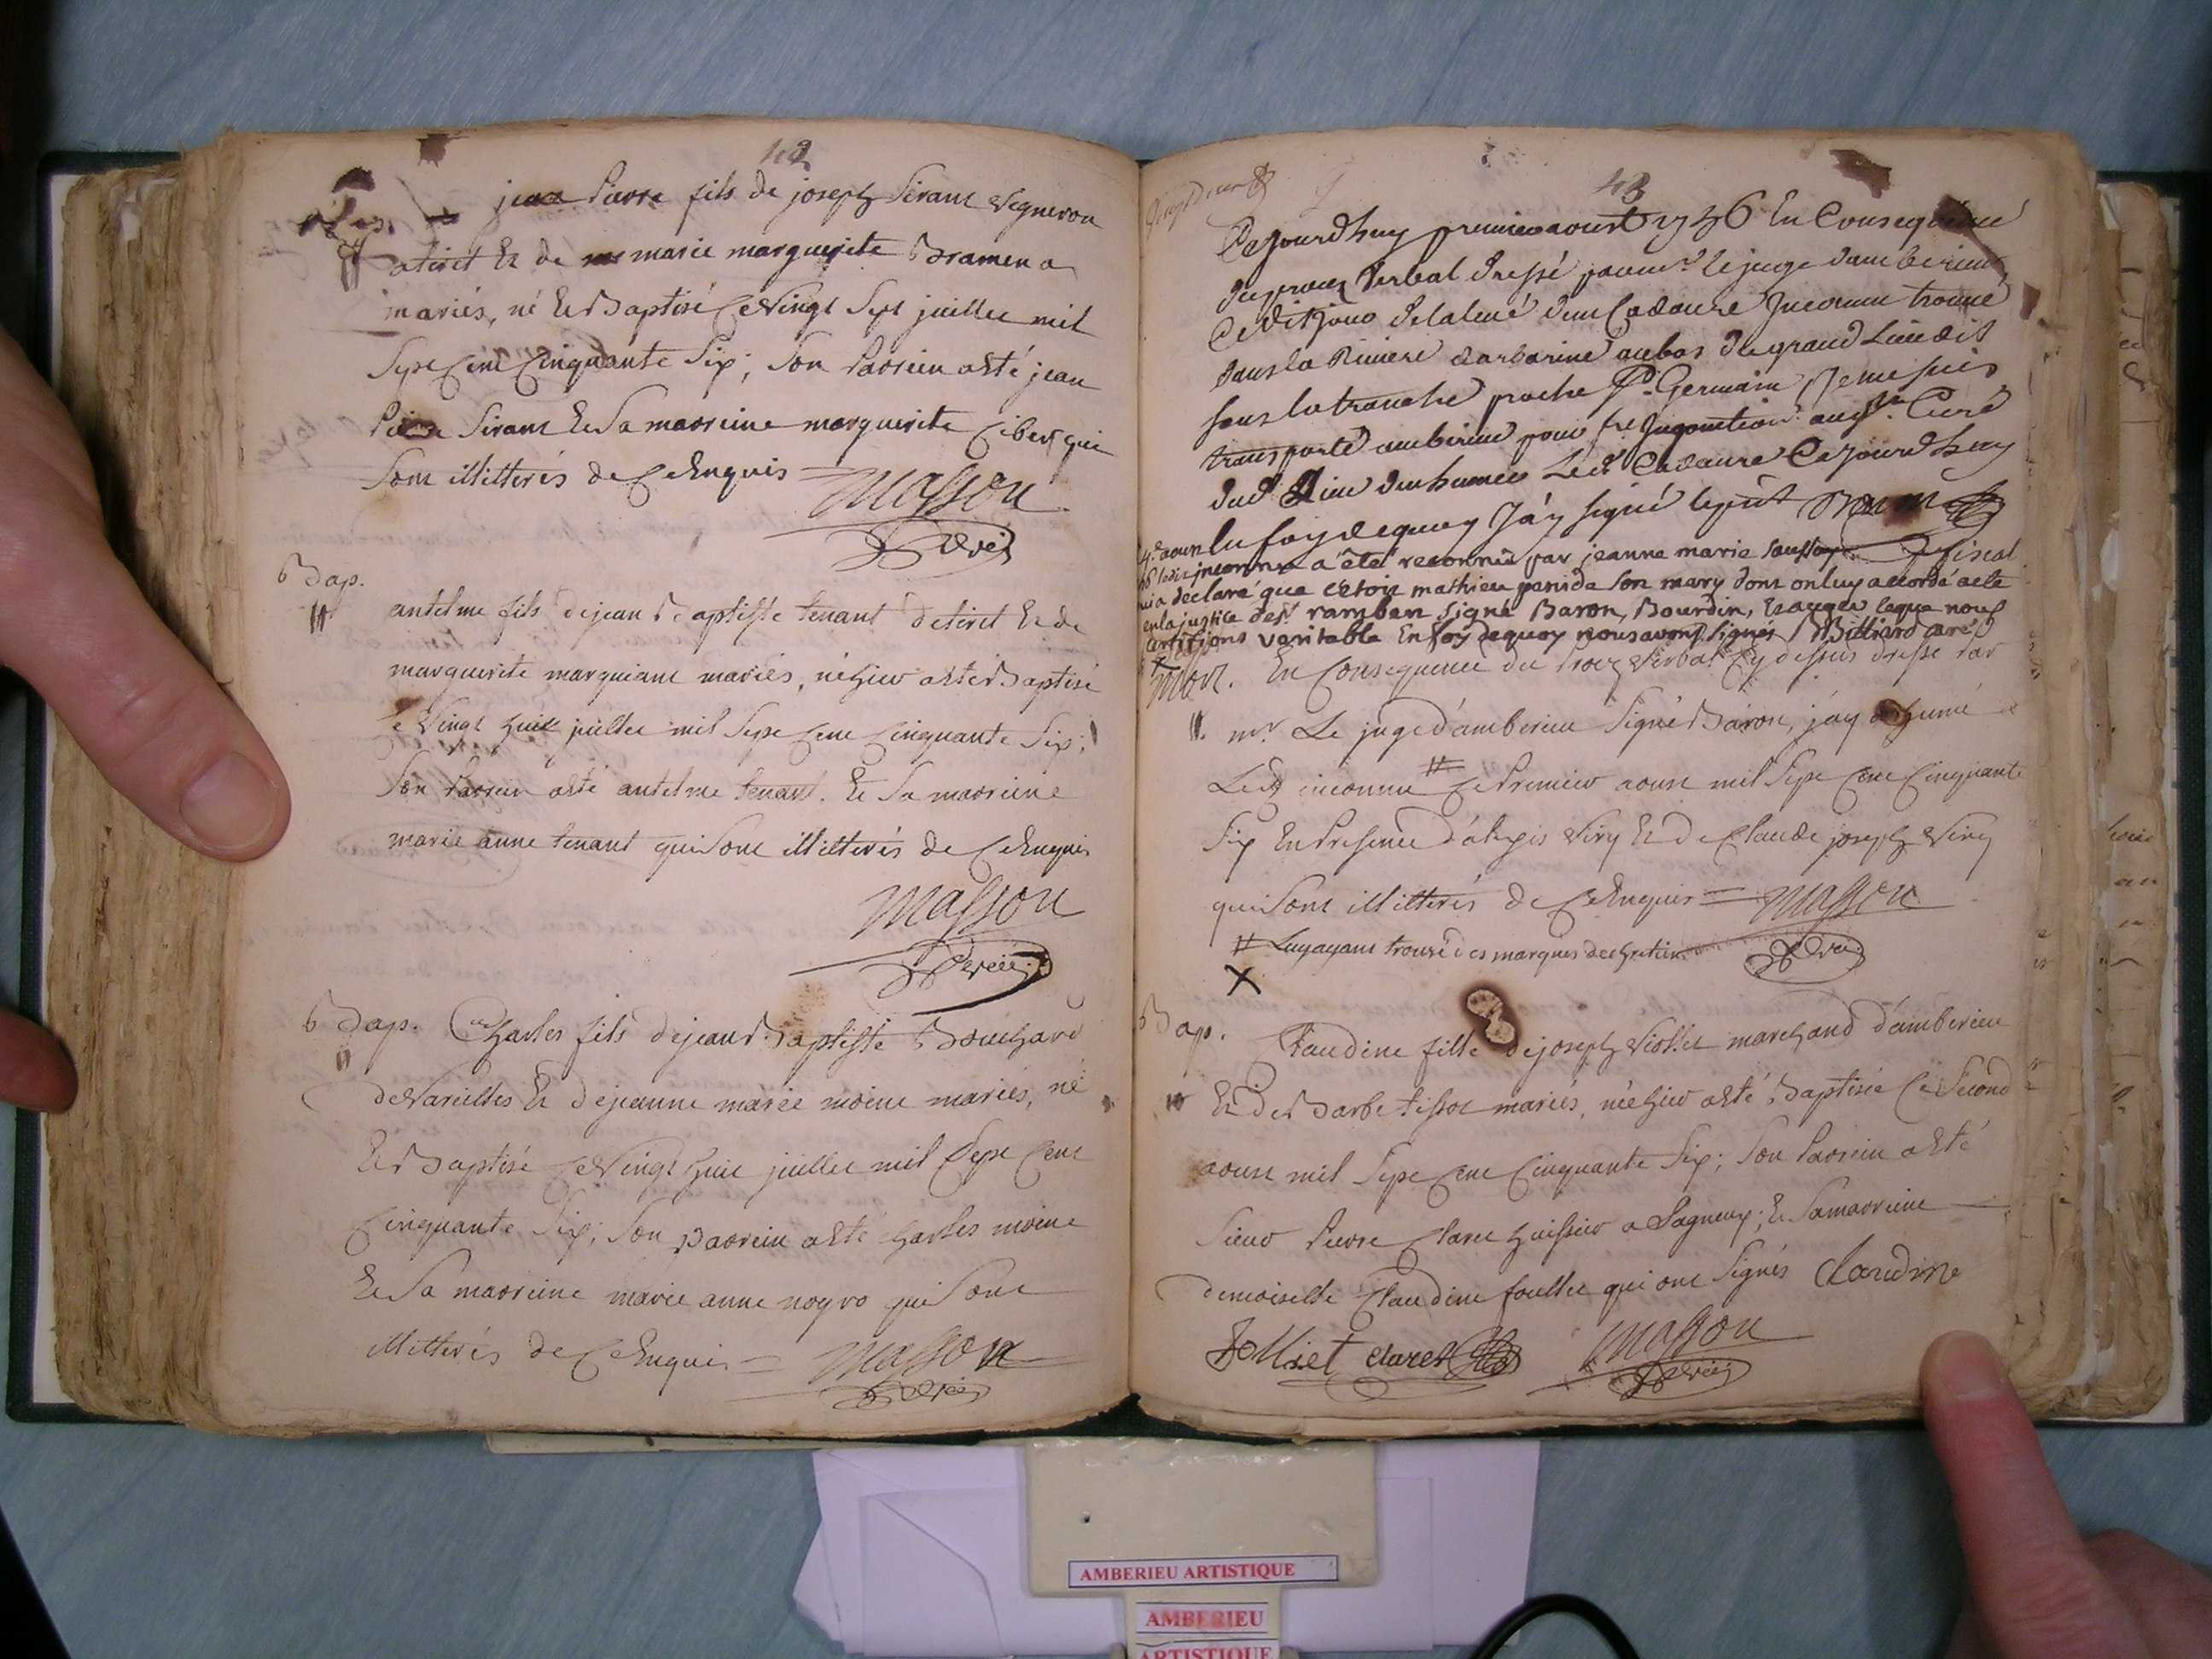 42
jean Pierre fils de joseph Sirant Vigneron
a tiret Et de marie marguerite Bramena
mariés, né Et Baptisé Ce Vingt Sept juillet mil
Sept Cent Cinquante Six; Son Parrein a Eté jean
Pierre Sirant Et Sa marreine marguerite Cibert qui
Sont illitterés de Ce Enquis
Masson
Curé
Bap.
antelme fils de jean Baptiste tenant de tiret Et de
marguerite marquiant mariés, né hier a Eté Baptisé
Ce Vingt huit juillet mil Sept Cent Cinquante Six;
Son Parrein a Eté antelme tenant. Et Sa marreine
marie anne tenant qui Sont illitterés de Ce Enquis
Masson
Curé
Bap. Charles fils de jean Baptiste Bouchard
de Varielles Et de jeanne marie moine mariés, né
Et Baptisé Ce Vingt huit juillet mil Sept Cent
Cinquante Six; Son Parrein a Eté Charles moine
Et Sa marreine marie anne nogro qui Sont
illitterés de Ce Enquis = Masson
Curé
43
Cejourdhuy premier aoust 1756 En Consequence
du procez Verbal dressé par mr. le juge d'amberieu
Ce dit jour de la levé d'un Cadavre Inconnu trouvé
dans la Riviere d'arbarine au bas du grand Lieu dit
sous la tranche proche St. Germain Je me suis
transporté amberieu pour fre Injonction au Sr. Curé
dud Lieu d'enhumer Led. Cadavre Cejourdhuy
En foy de quoy J'ay signé
inconnu a été reconnu par jeanne marie fiscal
a déclaré que c'etoit mathieu son mary dont on luy a accordé acte
en la justice de St. rambert signé Baron, Bourdin, Et auger ce que nous
certifions veritable En foy de quoy nous avons signés Billiard curé
Mort. En Consequence du Procez Verbal Cy dessus dressé Par
mr. Le juge d'amberieu Signé Baron, j'ay inhumé
Led. inconnu # Ce Premier aoust mil Sept Cent Cinquante
Six En Presence d'alexis Viry Et de Claude joseph Viry
qui Sont illitterés de Ce Enquis = Masson
# Luy ayant trouvé des marques de chretien Curé
X
Bap. Claudine fille de joseph Violet marchand d'amberieu
Et de Barbe tissot mariés, née hier a Eté Baptisée Ce Second
aoust mil Sept Cent Cinquante Six; Son Parrein a Eté
Sieur Pierre Claret huissier a Lagneux; Et Sa marreine
demoiselle Claudine foulliet qui ont Signés Claudine
folliet Claret Masson
Curé
AMBERIEU ARTISTIQUE
AMBERIEU
ARTISTIQUE